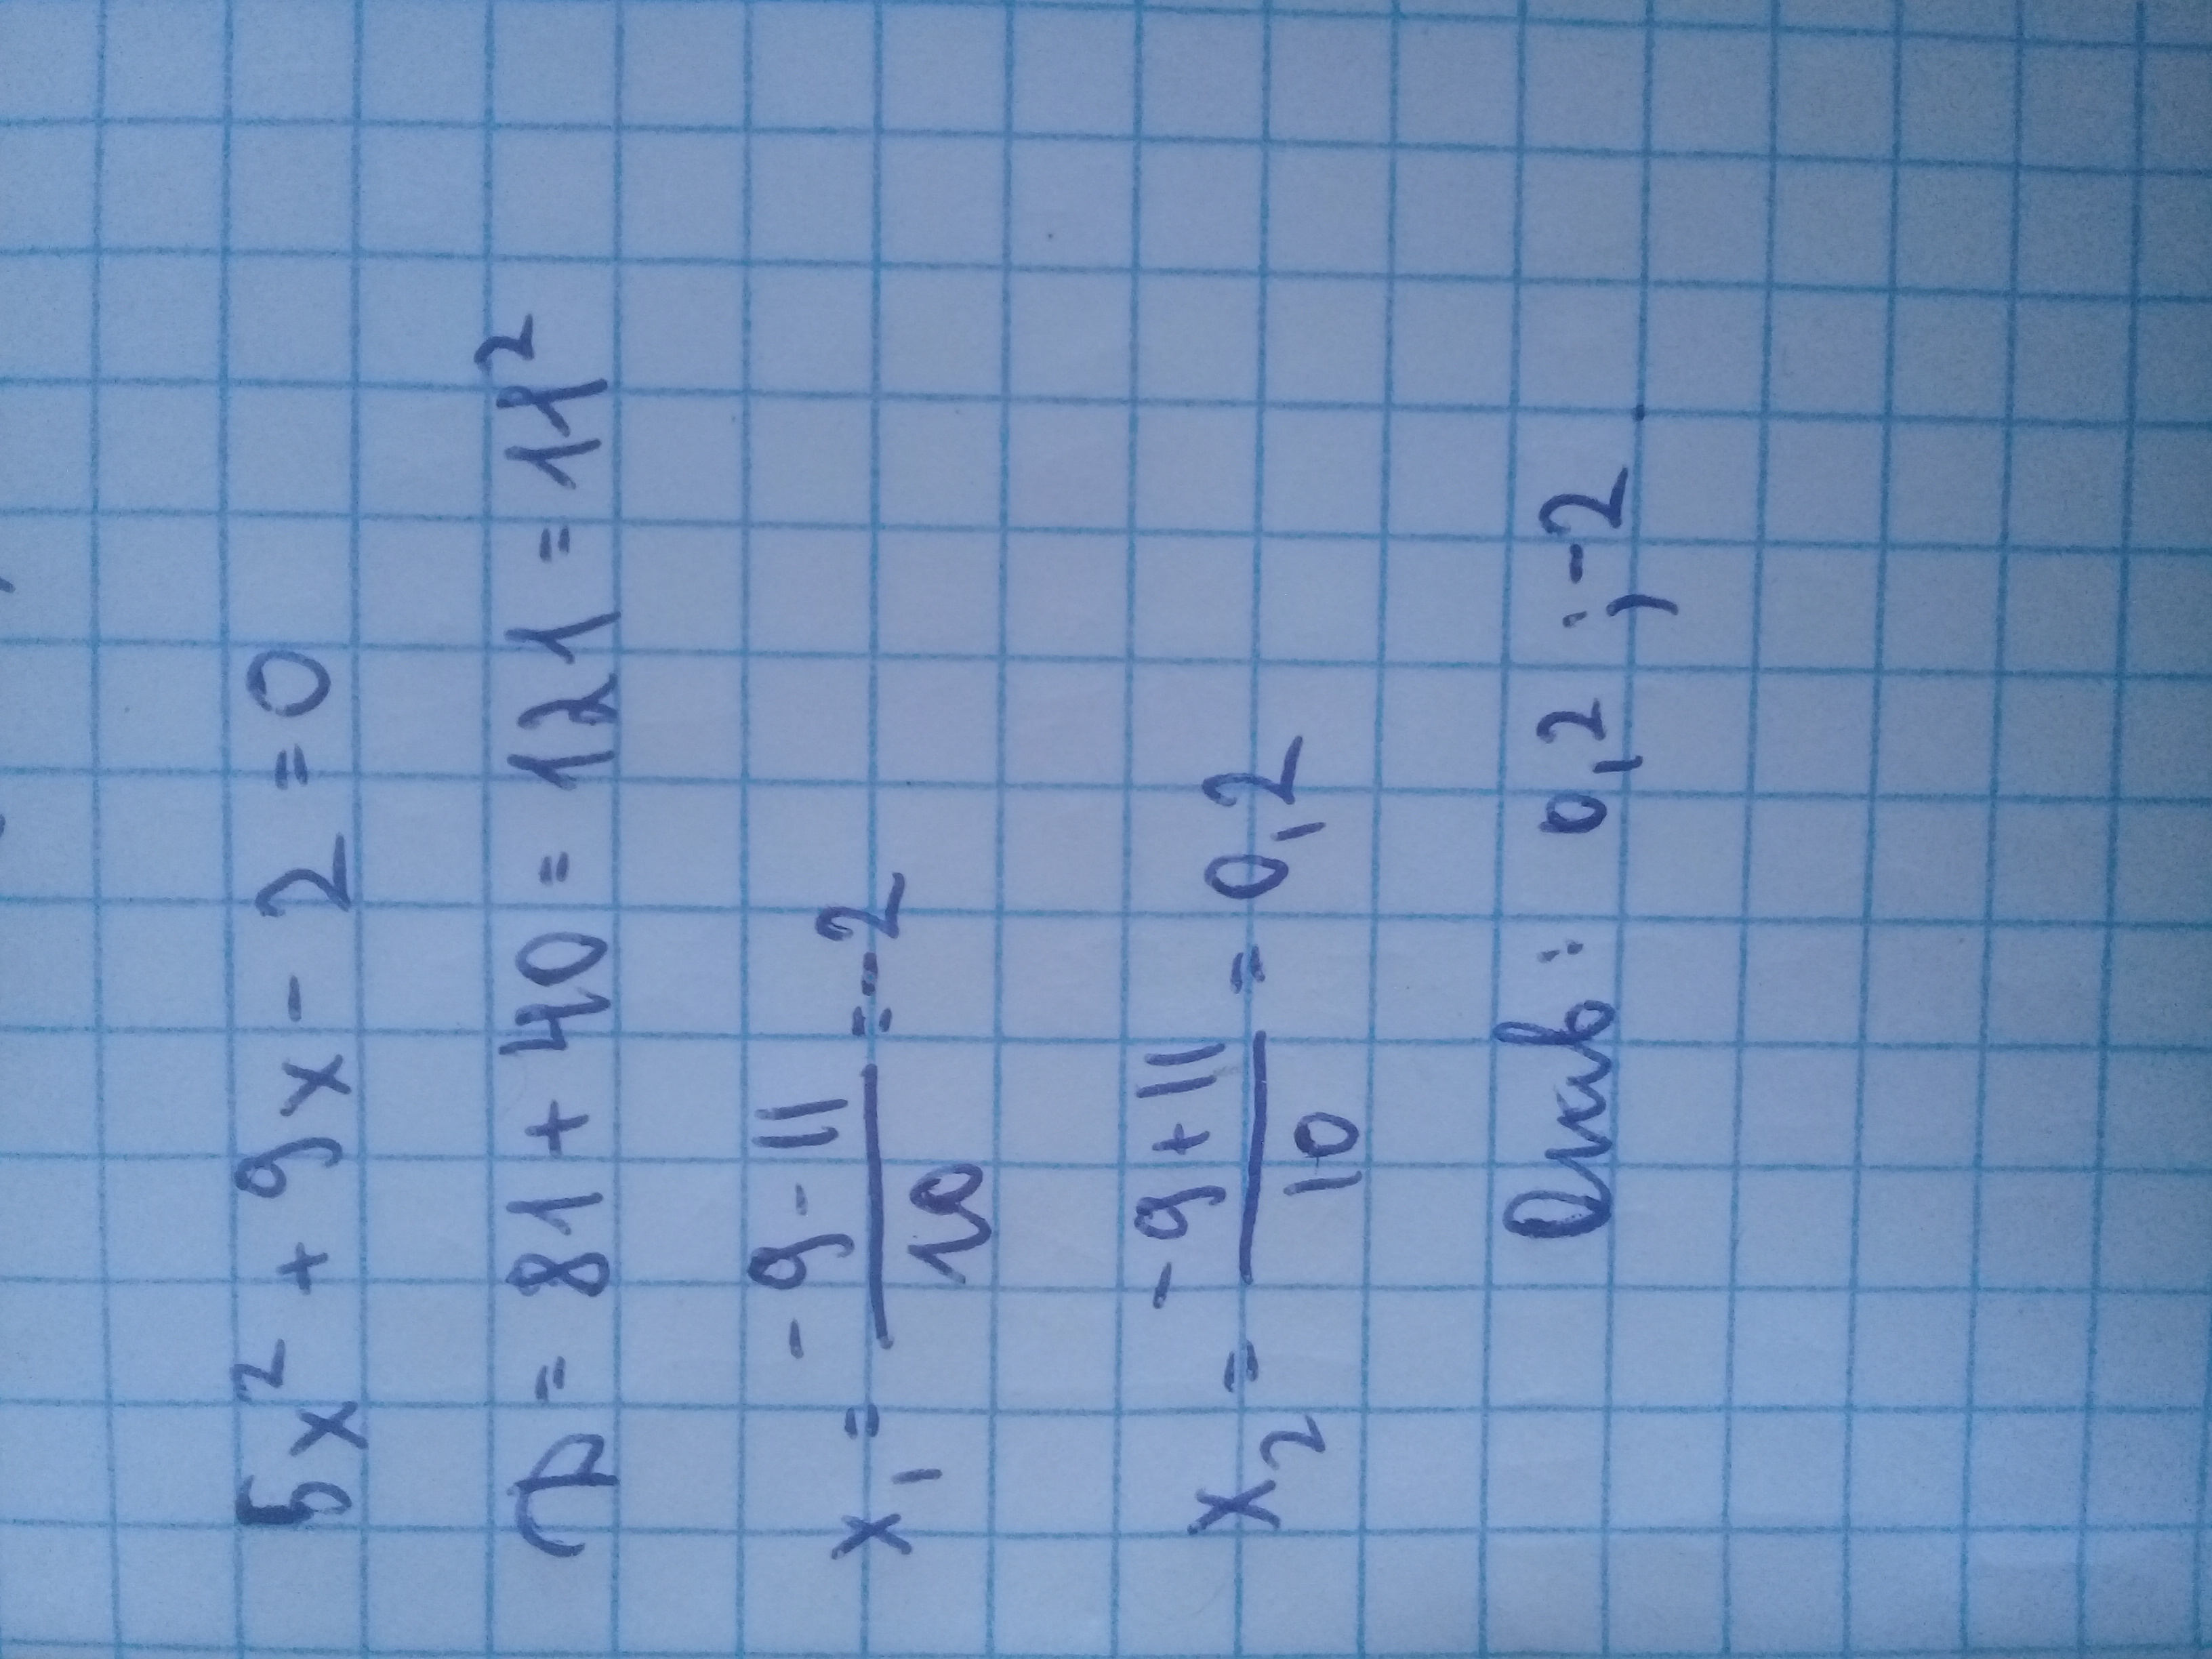 5x² + 9x - 2 = 0
D = 81 + 40 = 121 = 11²
x₁ = (-9-11)/10 = -2
x₂ = (-9+11)/10 = 0,2
Ответ: 0,2 ; -2.